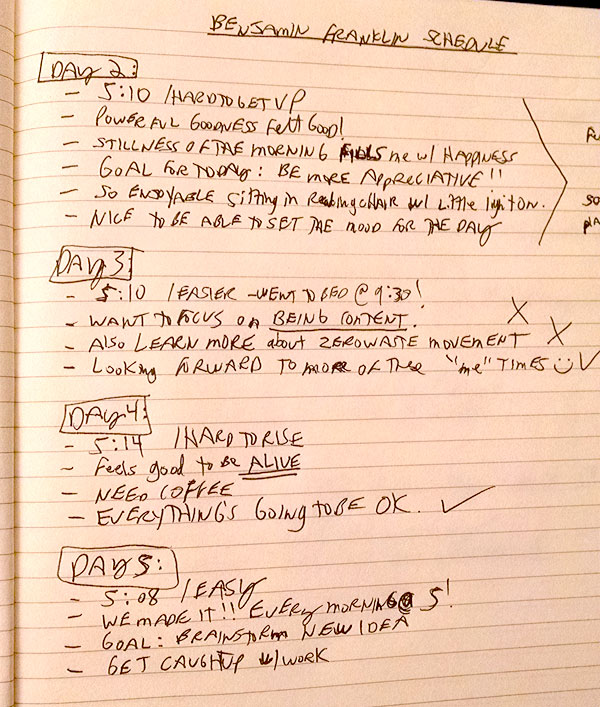 BENJAMIN FRANKLIN SCHEDULE
DAY 2:
- 5:10 / HARD TO GET UP
- POWERFUL GOODNESS FELT GOOD!
- STILLNESS OF THE MORNING FILLS me w/ HAPPINESS
- GOAL FOR TODAY: BE MORE APPRECIATIVE!!
- SO ENJOYABLE SITTING in ReadingCHAIR w/ Little light ON.
- NICE TO BE ABLE TO SET THE MOOD FOR THE DAY
DAY 3:
- 5:10 / EASIER - WENT TO BED @ 9:30!
- WANT TO FOCUS ON BEING CONTENT. X
- Also LEARN MORE about ZEROWASTE MOVEMENT X
- Looking FORWARD TO MORE OF these "me" TIMES ☺ ✓
DAY 4:
- 5:14 / HARD TO RISE
- Feels good to be ALIVE
- NEED COFFEE
- EVERYTHING'S GOING TO BE OK. ✓
DAY 5:
- 5:08 / EASY
- WE MADE IT!! EVERY MORNING @ 5!
- GOAL: BRAINSTORM NEW IDEA
- GET CAUGHT UP w/ WORK